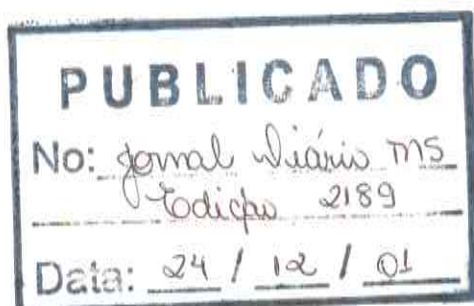 PUBLICADO
No: Jornal Diário MS
Edição 2189
Data: 24 / 12 / 01